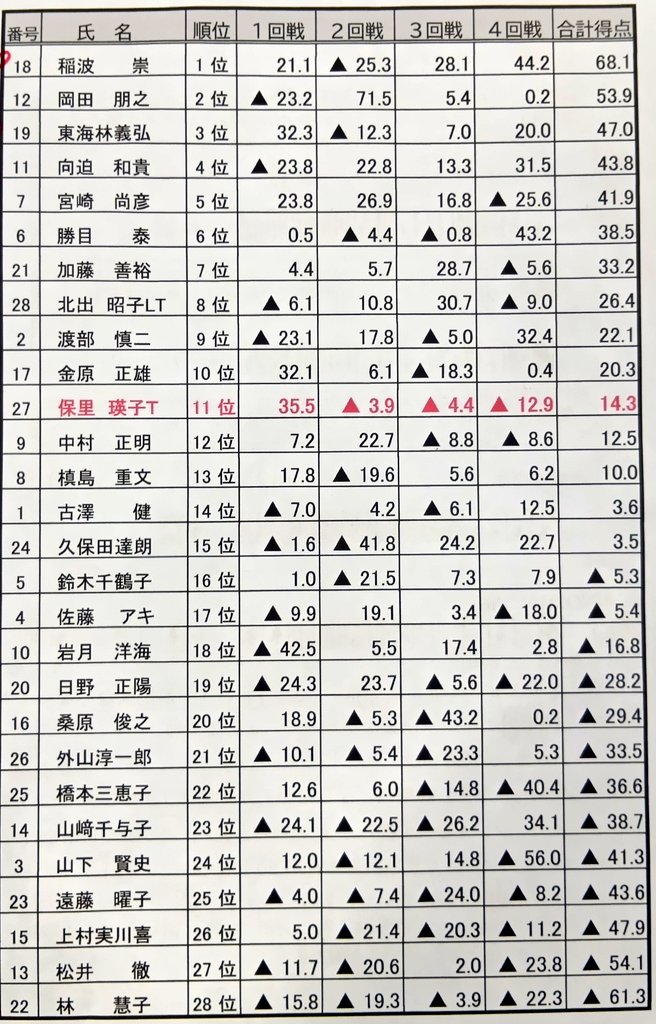 番号 氏 名 順位 1回戦 2回戦 3回戦 4回戦 合計得点
18 稲波 崇 1 位 21.1 ▲ 25.3 28.1 44.2 68.1
12 岡田 朋之 2 位 ▲ 23.2 71.5 5.4 0.2 53.9
19 東海林義弘 3 位 32.3 ▲ 12.3 7.0 20.0 47.0
11 向迫 和貴 4 位 ▲ 23.8 22.8 13.3 31.5 43.8
7 宮崎 尚彦 5 位 23.8 26.9 16.8 ▲ 25.6 41.9
6 勝目 泰 6 位 0.5 ▲ 4.4 ▲ 0.8 43.2 38.5
21 加藤 善裕 7 位 4.4 5.7 28.7 ▲ 5.6 33.2
28 北出 昭子LT 8 位 ▲ 6.1 10.8 30.7 ▲ 9.0 26.4
2 渡部 慎二 9 位 ▲ 23.1 17.8 ▲ 5.0 32.4 22.1
17 金原 正雄 10 位 32.1 6.1 ▲ 18.3 0.4 20.3
27 保里 瑛子T 11 位 35.5 ▲ 3.9 ▲ 4.4 ▲ 12.9 14.3
9 中村 正明 12 位 7.2 22.7 ▲ 8.8 ▲ 8.6 12.5
8 槙島 重文 13 位 17.8 ▲ 19.6 5.6 6.2 10.0
1 古澤 健 14 位 ▲ 7.0 4.2 ▲ 6.1 12.5 3.6
24 久保田達朗 15 位 ▲ 1.6 ▲ 41.8 24.2 22.7 3.5
5 鈴木千鶴子 16 位 1.0 ▲ 21.5 7.3 7.9 ▲ 5.3
4 佐藤 アキ 17 位 ▲ 9.9 19.1 3.4 ▲ 18.0 ▲ 5.4
10 岩月 洋海 18 位 ▲ 42.5 5.5 17.4 2.8 ▲ 16.8
20 日野 正陽 19 位 ▲ 24.3 23.7 ▲ 5.6 ▲ 22.0 ▲ 28.2
16 桑原 俊之 20 位 18.9 ▲ 5.3 ▲ 43.2 0.2 ▲ 29.4
26 外山淳一郎 21 位 ▲ 10.1 ▲ 5.4 ▲ 23.3 5.3 ▲ 33.5
25 橋本三恵子 22 位 12.6 6.0 ▲ 14.8 ▲ 40.4 ▲ 36.6
14 山﨑千与子 23 位 ▲ 24.1 ▲ 22.5 ▲ 26.2 34.1 ▲ 38.7
3 山下 賢史 24 位 12.0 ▲ 12.1 14.8 ▲ 56.0 ▲ 41.3
23 遠藤 曜子 25 位 ▲ 4.0 ▲ 7.4 ▲ 24.0 ▲ 8.2 ▲ 43.6
15 上村実川喜 26 位 5.0 ▲ 21.4 ▲ 20.3 ▲ 11.2 ▲ 47.9
13 松井 徹 27 位 ▲ 11.7 ▲ 20.6 2.0 ▲ 23.8 ▲ 54.1
22 林 慧子 28 位 ▲ 15.8 ▲ 19.3 ▲ 3.9 ▲ 22.3 ▲ 61.3